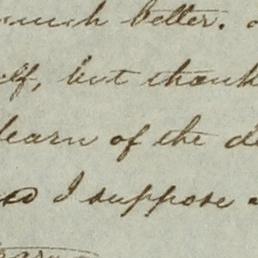 much better.
elf, but thank
learn of the de
I suppose